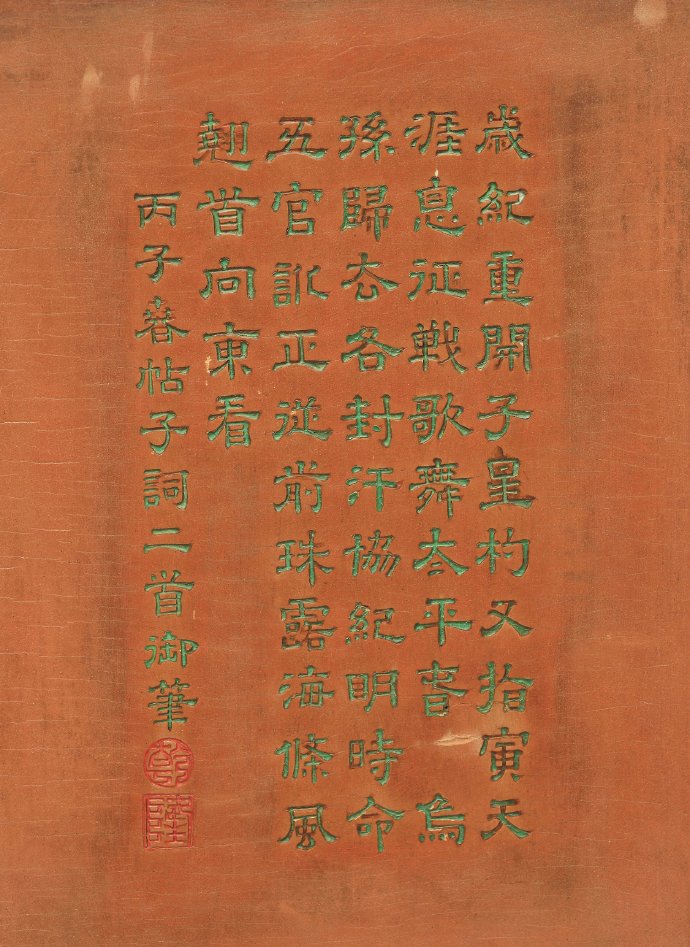 歲紀重開子星杓又指寅天
涯息征戰歌舞太平旾 烏
孫歸去各封汗協紀明時命
五官訛正從前珠露海條風
翹首向東看
丙子春帖子詞二首御筆
乾
隆